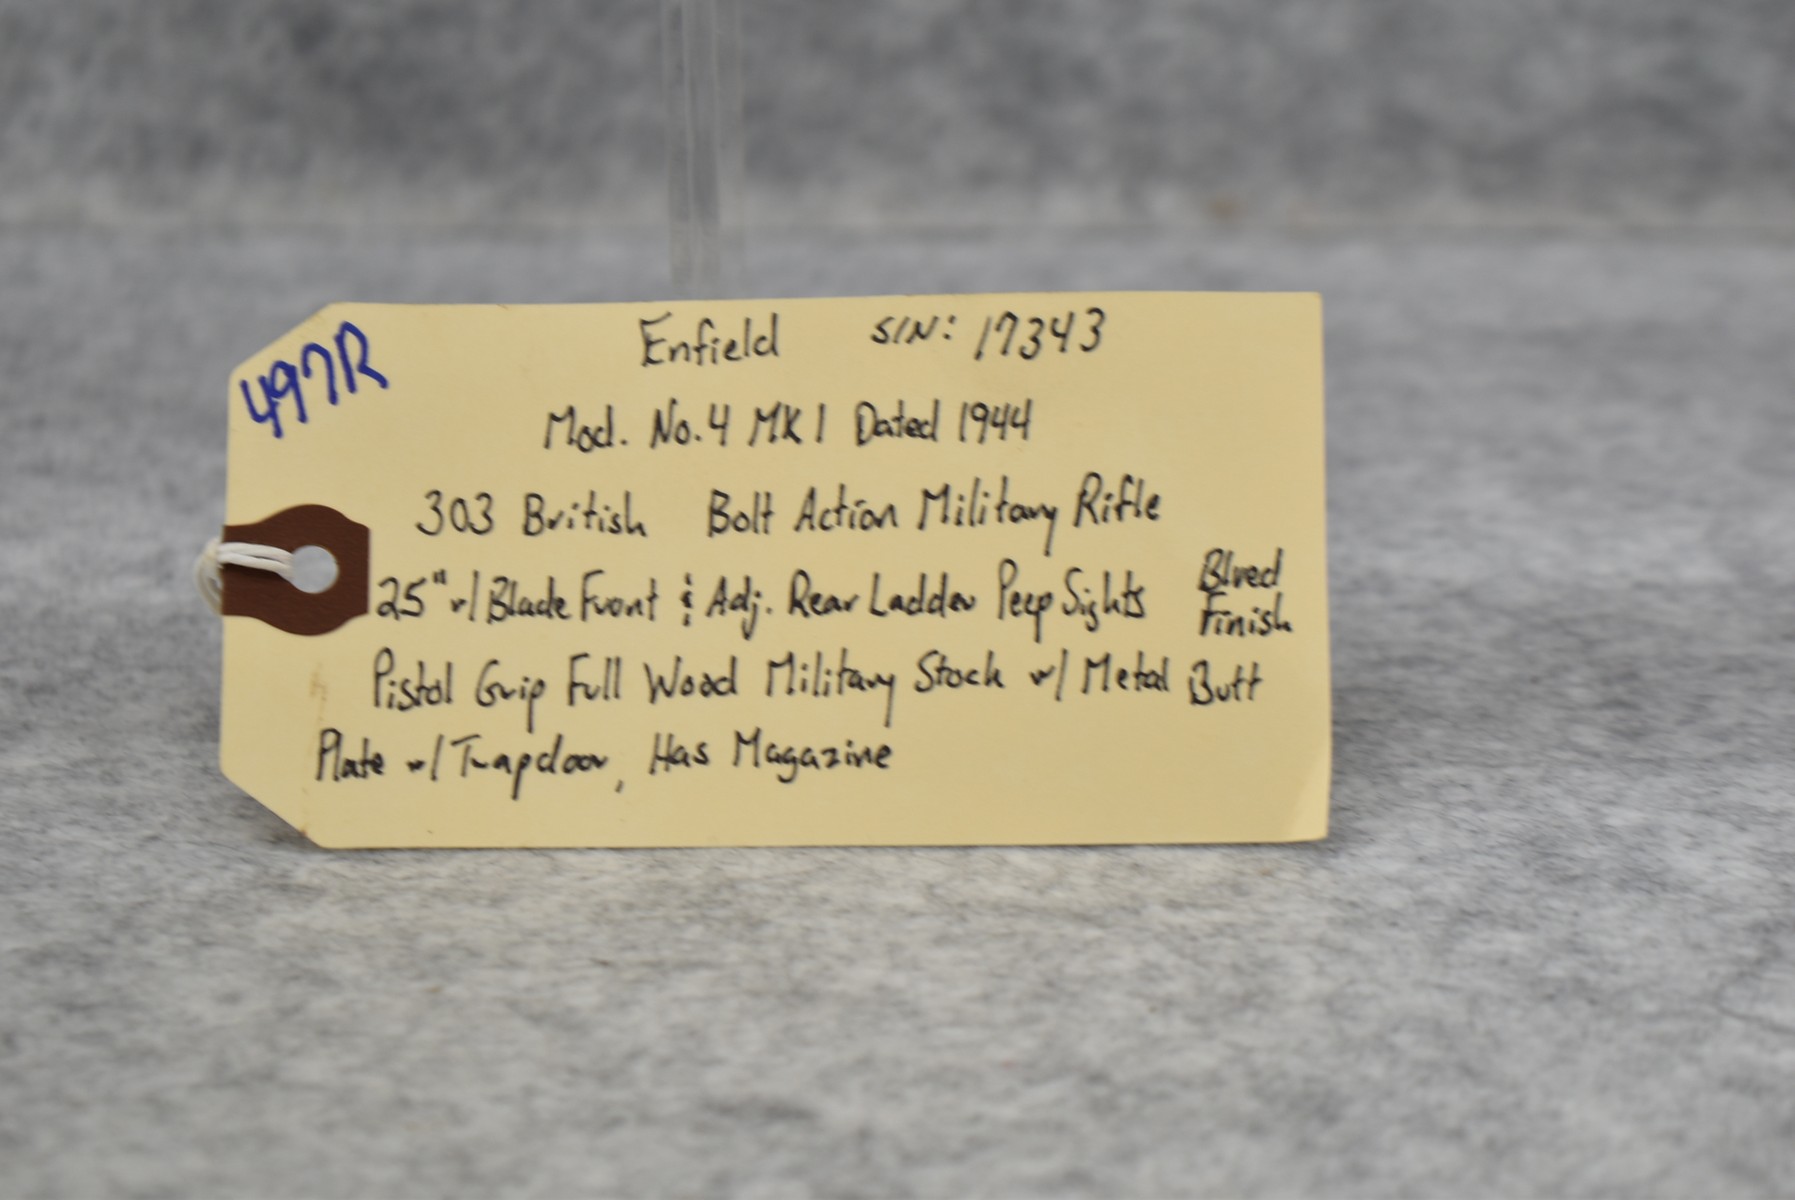 497R
Enfield S/N: 17343
Mod. No. 4 MK 1 Dated 1944
303 British Bolt Action Military Rifle
25" w/ Blade Front & Adj. Rear Ladder Peep Sights Blued Finish
Pistol Grip Full Wood Military Stock w/ Metal Butt
Plate w/ Trapdoor, Has Magazine